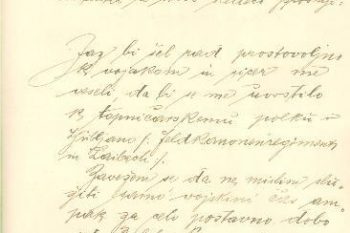 Jaz bi šel rad prostovoljno
k vojakom in sicer me
veseli, da bi se me uvrstilo
k topničarskemu polku v
Ljubljano /: Feldkanonenregiment
in Laibach :/.
Zavežem se da ne mislim slu-
žiti samo vojskini čas am-
pak za celi postavno dobo